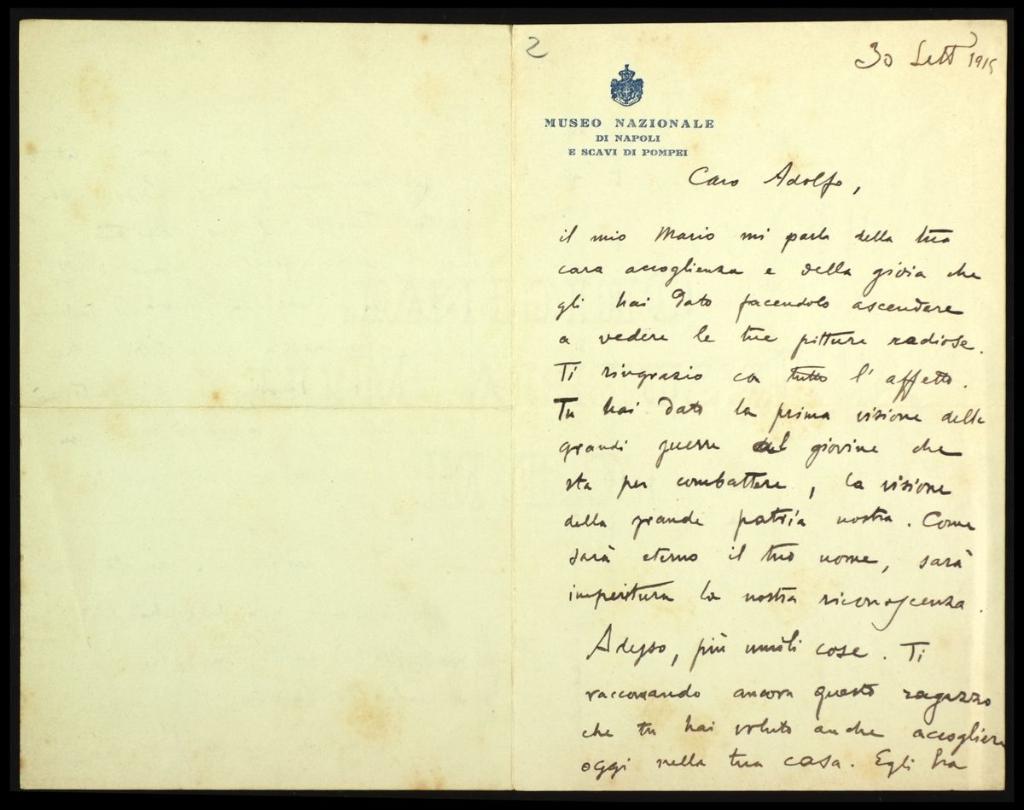 2
30 Sett 1915
MUSEO NAZIONALE
DI NAPOLI
E SCAVI DI POMPEI
Caro Adolfo,
il mio Mario mi parla della tua
cara accoglienza e della gioia che
gli hai dato facendolo ascendere
a vedere le tue pitture radiose.
Ti ringrazio con tutto l'affetto.
Tu hai dato la prima visione delle
grandi guerre al giovine che
sta per combattere, la visione
della grande patria nostra. Come
sarà eterno il tuo nome, sarà
imperitura la nostra riconoscenza.
Adesso, più umili cose. Ti
raccomando ancora questo ragazzo
che tu hai voluto anche accogliere
oggi nella tua casa. Egli ha